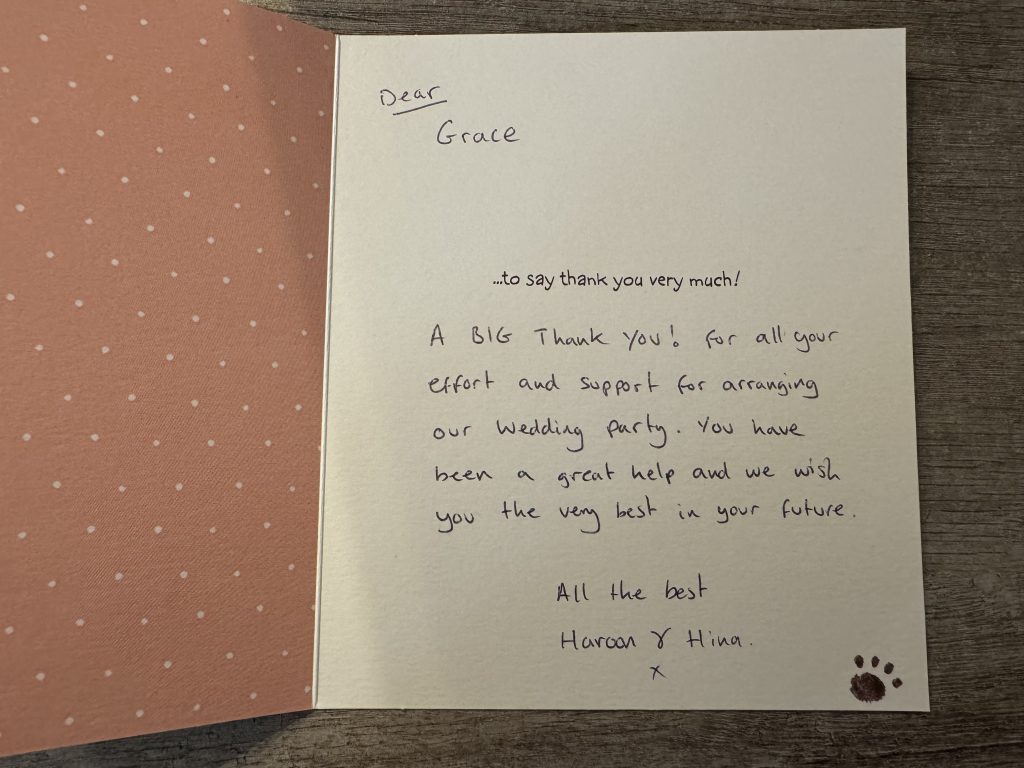 Dear
Grace
...to say thank you very much!
A BIG Thank You! For all your
effort and support for arranging
our wedding party. You have
been a great help and we wish
you the very best in your future.
All the best
Haroon & Hina.
x